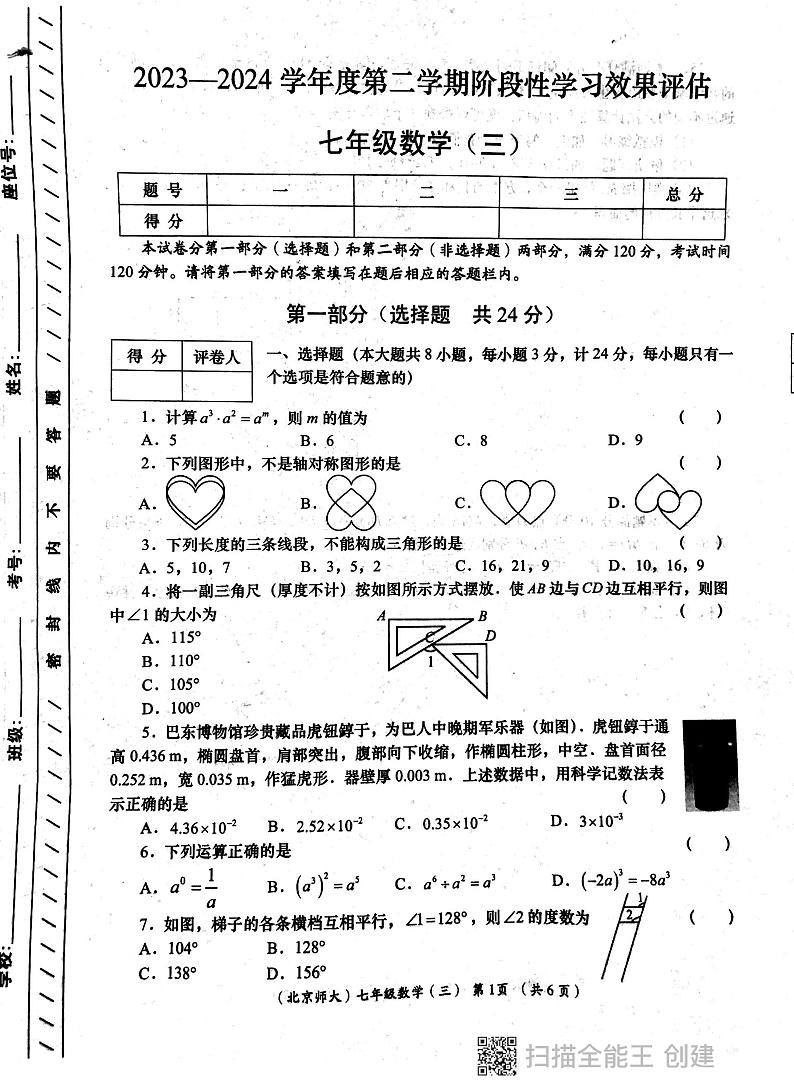 2023—2024 学年度第二学期阶段性学习效果评估
七年级数学（三）
题 号 一 二 三 总 分
得 分
本试卷分第一部分（选择题）和第二部分（非选择题）两部分，满分 120 分，考试时间
120 分钟。请将第一部分的答案填写在题后相应的答题栏内。
第一部分（选择题 共 24 分）
得 分 评卷人
一、选择题（本大题共 8 小题，每小题 3 分，计 24 分，每小题只有一
个选项是符合题意的）
1．计算 a³·a²=aᵐ，则 m 的值为 （ ）
A．5 B．6 C．8 D．9
2．下列图形中，不是轴对称图形的是 （ ）
A． B． C． D．
3．下列长度的三条线段，不能构成三角形的是 （ ）
A．5，10，7 B．3，5，2 C．16，21，9 D．10，16，9
4．将一副三角尺（厚度不计）按如图所示方式摆放．使 AB 边与 CD 边互相平行，则图
中∠1 的大小为 （ ）
A．115°
B．110°
C．105°
D．100°
A B
C D
1
5．巴东博物馆珍贵藏品虎钮錞于，为巴人中晚期军乐器（如图）．虎钮錞于通
高 0.436 m，椭圆盘首，肩部突出，腹部向下收缩，作椭圆柱形，中空．盘首面径
0.252 m，宽 0.035 m，作猛虎形．器壁厚 0.003 m．上述数据中，用科学记数法表
示正确的是 （ ）
A．4.36×10⁻² B．2.52×10⁻² C．0.35×10⁻² D．3×10⁻³
6．下列运算正确的是 （ ）
A．a⁰=1/a B．(a³)²=a⁵ C．a⁶÷a²=a³ D．(−2a)³=−8a³
7．如图，梯子的各条横档互相平行，∠1=128°，则∠2 的度数为 （ ）
A．104° B．128°
C．138° D．156°
1
2
（北京师大）七年级数学（三） 第 1 页 （共 6 页）
座位号：
姓名：
考号：
班级：
学校：
密 封 线 内 不 要 答 题
扫描全能王 创建